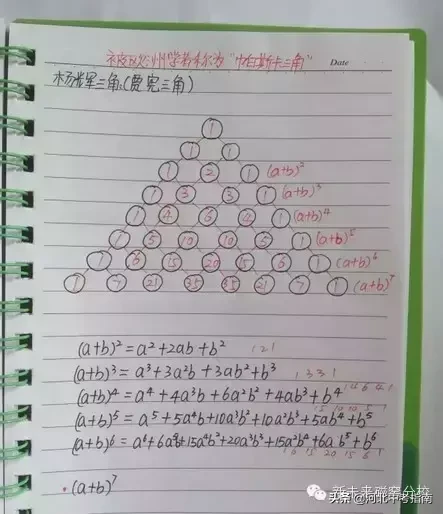 被欧洲学者称为"帕斯卡三角"
Date
杨辉三角(贾宪三角)
1
1 1
1 2 1 (a+b)²
1 3 3 1 (a+b)³
1 4 6 4 1 (a+b)⁴
1 5 10 10 5 1 (a+b)⁵
1 6 15 20 15 6 1 (a+b)⁶
1 7 21 35 35 21 7 1 (a+b)⁷
(a+b)² = a²+2ab+b² 1 2 1
(a+b)³ = a³+3a²b+3ab²+b³ 1 3 3 1
(a+b)⁴ = a⁴+4a³b+6a²b²+4ab³+b⁴ 1 4 6 4 1
(a+b)⁵ = a⁵+5a⁴b+10a³b²+10a²b³+5ab⁴+b⁵ 1 5 10 10 5 1
(a+b)⁶ = a⁶+6a⁵b+15a⁴b²+20a³b³+15a²b⁴+6ab⁵+b⁶
15 20 15 6 1
(a+b)⁷
新未来磁窑分校
头条@河北中考指南